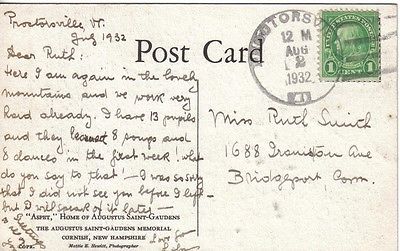 Proctorsville, Vt.
Aug 1932
Dear Ruth:
Here I am again in the lovely
mountains and we work very
hard already. I have 13 pupils
and they learnt 8 songs and
8 dances in the first week! What
do you say to that! — I was sorry
that I did not see you before I left
but I will speak of it later —
Love
Post Card
PROCTORSVILLE
12 M
AUG
2
1932
VT
UNITED STATES POSTAGE
1 CENT 1
Miss Ruth Smith
1688 Iranistan Ave
Bridgeport Conn.
"ASPET," HOME OF AUGUSTUS SAINT-GAUDENS
THE AUGUSTUS SAINT-GAUDENS MEMORIAL
CORNISH, NEW HAMPSHIRE
Mattie E. Hewitt, Photographer